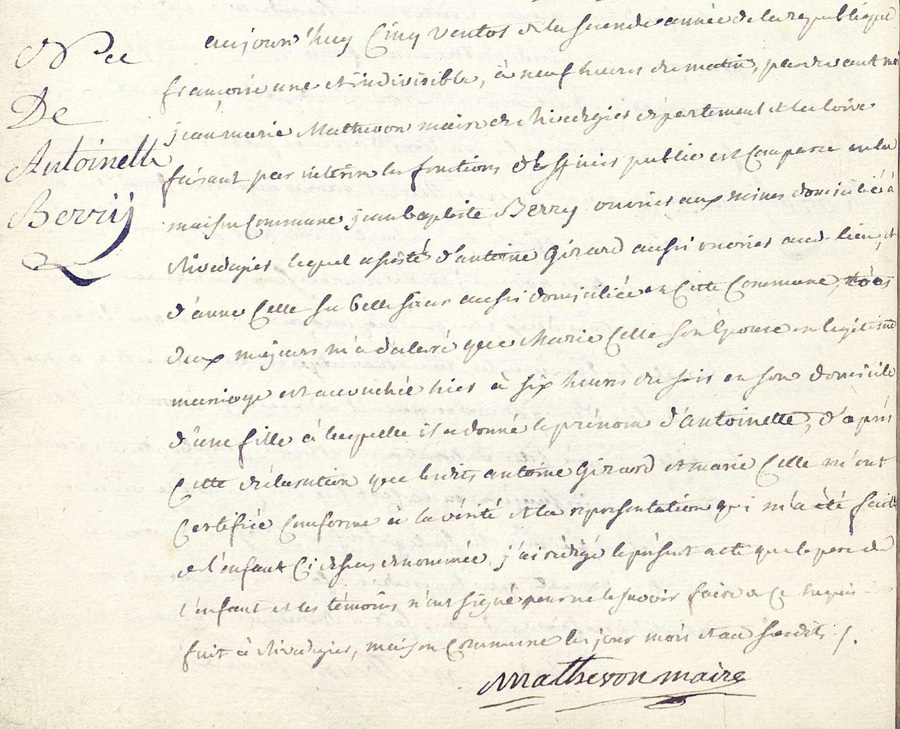 Nee
De
Antoinette
Berry
aujourd'huy Cinq ventos de la seconde année de la republique
françoise une et indivisible, à neuf heures du matin, par devant moi
jean marie Mathevon maire de Rivedgies departement de la loire
faisant par interim les fonctions d'officier public est comparu en la
maison Commune jean baptiste Berry ouvries aux mines domicilié à
Rivedgies lequel assisté d'antoine Girard aussi ouvries aud. lieu, et
d'anne Celle sa belle sœur aussi domiciliée en Cette Commune,
deux majeurs m'a déclaré que Marie Celle son Epouse en legitime
mariage est accouchée hier a six heures du soir en son domicile
d'une fille à laquelle il a donné le prénom d'antoinette, d'après
Cette déclaration que lesdits antoine Girard et marie Celle m'ont
Certifiée Conforme à la vérité et la representation qui m'a été faite
de l'enfant Ci dessus denommée, j'ai rédigé le présent acte que le pere de
l'enfant et les témoins n'ont signé pour ne le savoir faire de ce requis
fait à Rivedgies, maison Commune les jour mois et an susdits ./.
Mathevon maire